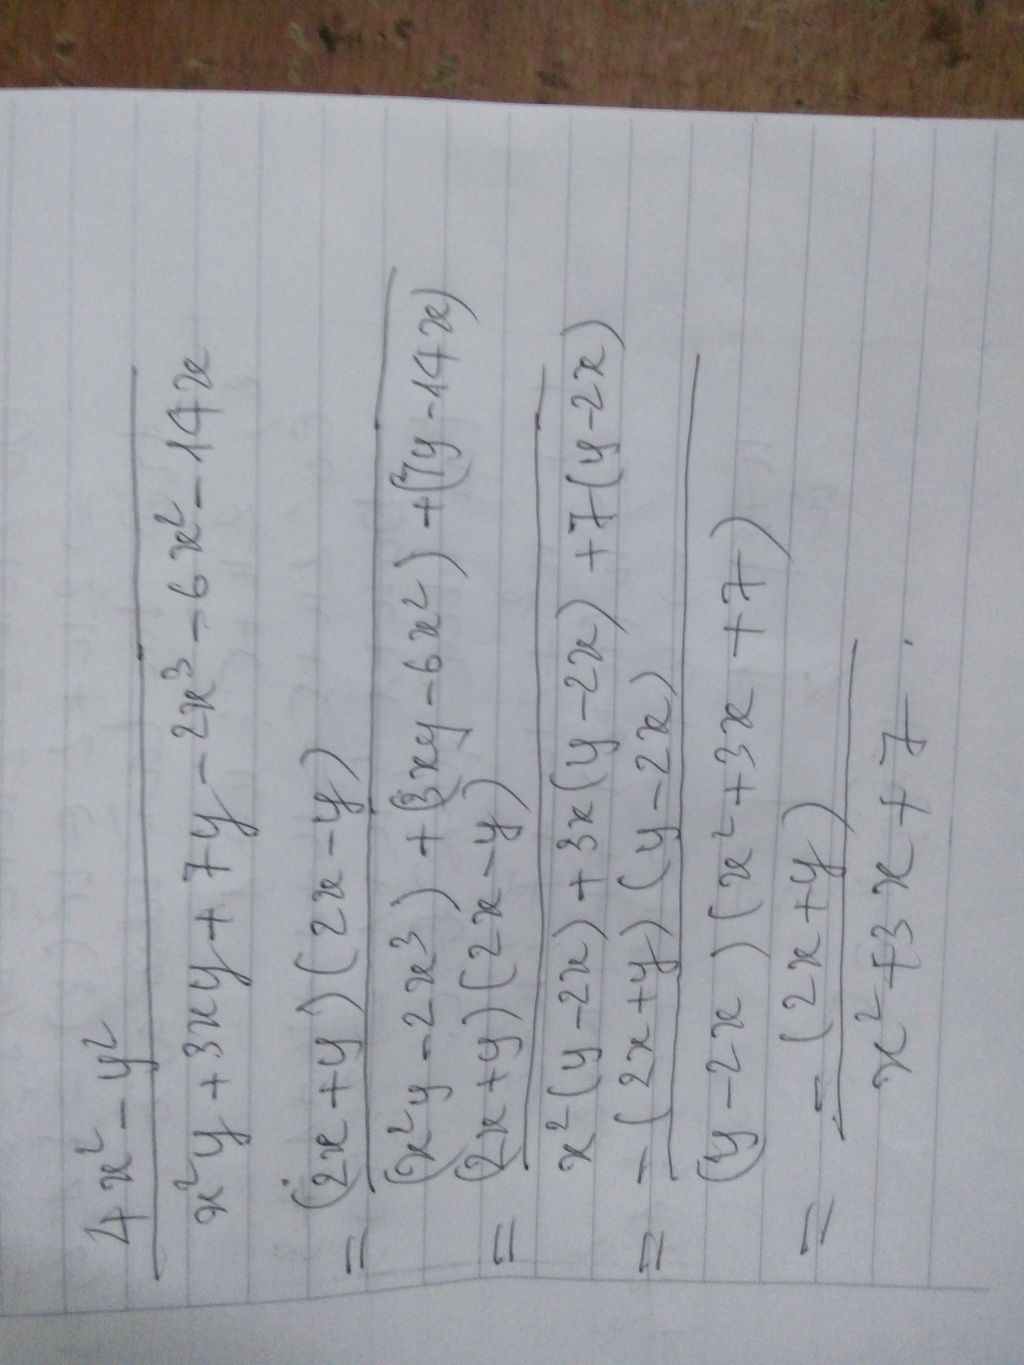 4x² - y²
x²y + 3xy + 7y - 2x³ - 6x² - 14x
= (2x + y)(2x - y)
(x²y - 2x³) + (3xy - 6x²) + (7y - 14x)
= (2x + y)(2x - y)
x²(y - 2x) + 3x(y - 2x) + 7(y - 2x)
= -(2x + y)(y - 2x)
(y - 2x)(x² + 3x + 7)
= -(2x + y)
x² + 3x + 7.